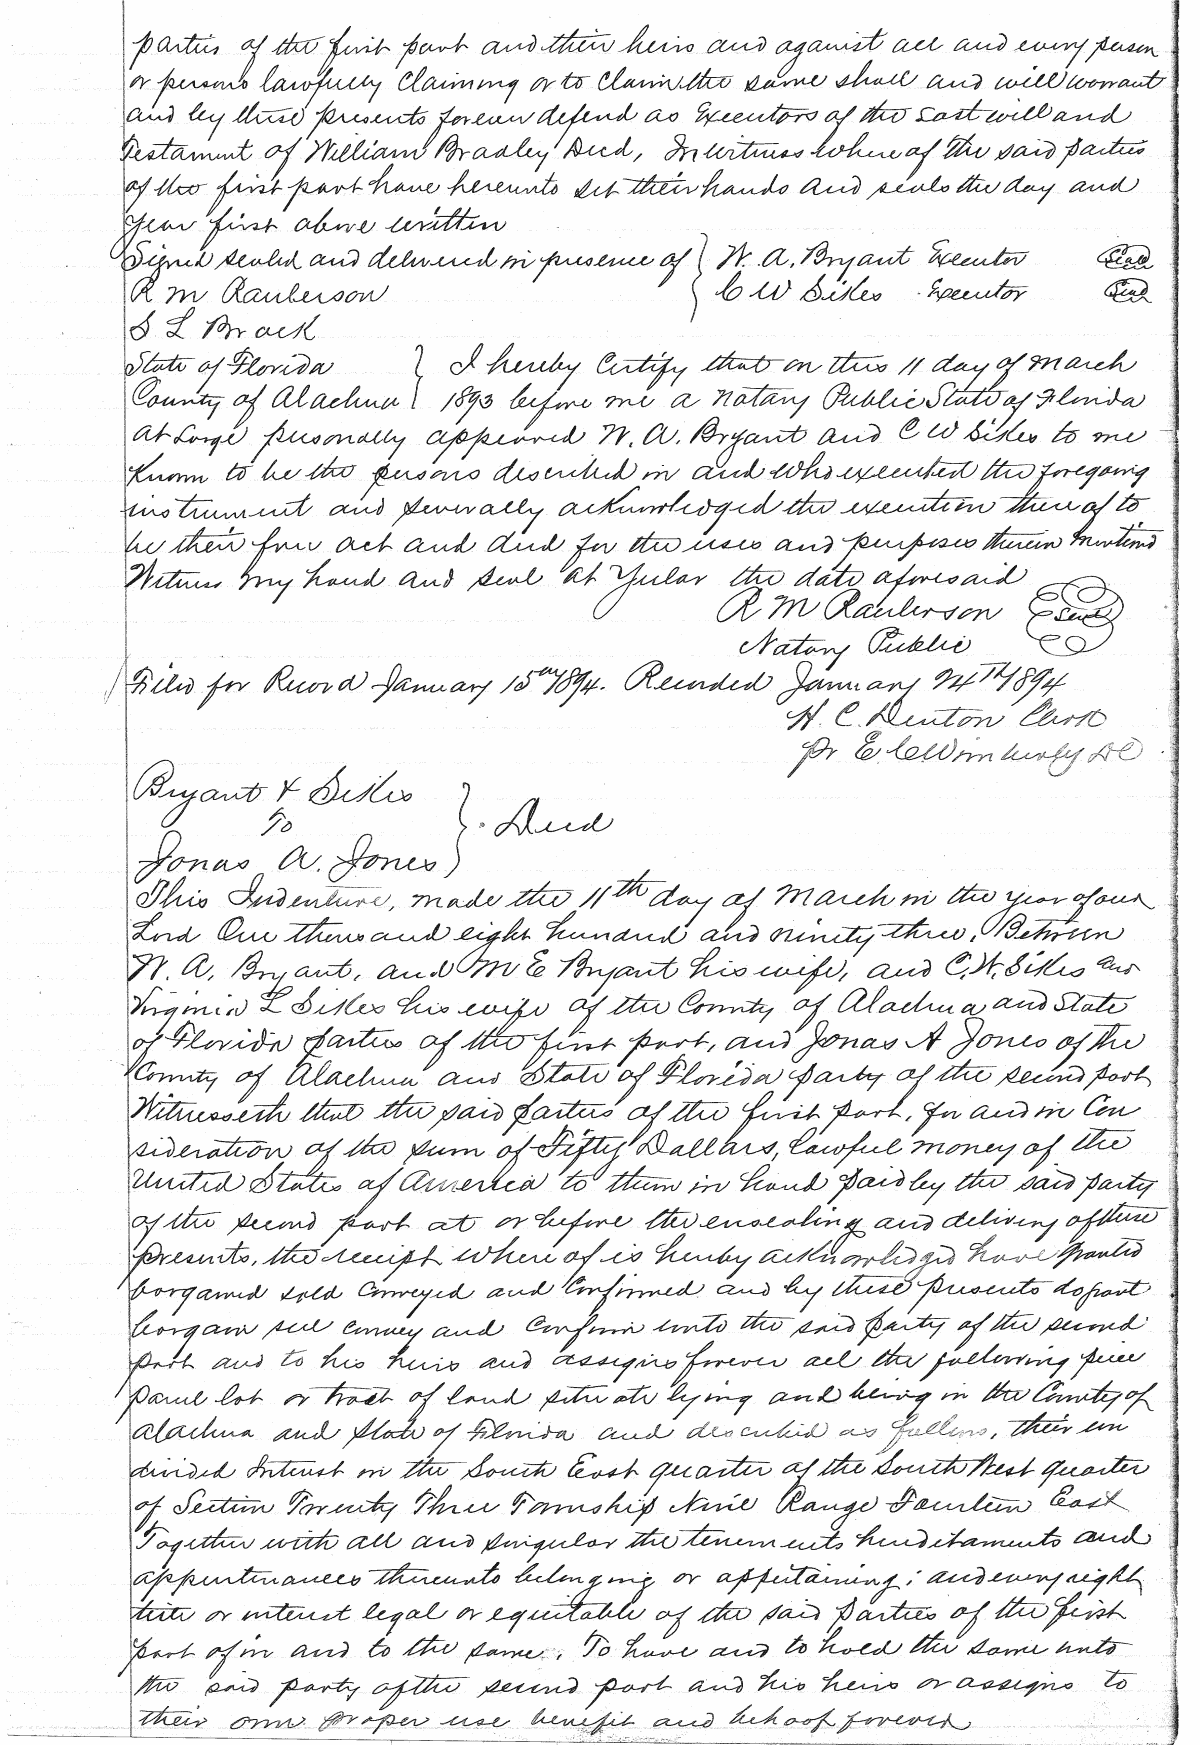 parties of the first part and their heirs and against all and every person
or persons lawfully Claiming or to Claim the same shall and will warrant
and by these presents forever defend as Executors of the Last will and
Testament of William Bradley Decd, In witness where of the said parties
of the first part have hereunto set their hands and seals the day and
Year first above written
Signed sealed and delivered in presence of } W. A. Bryant Executor Seal
R M Raulerson } C W Sikes Executor Seal
S L Brock
State of Florida } I hereby Certify that on this 11 day of March
County of Alachua } 1893 before me a Notary Public State of Florida
At Large personally appeared W. A. Bryant and C W Sikes to me
Known to be the persons described in and who executed the foregoing
instrument and severally acknowledged the execution there of to
be their free act and deed for the uses and purposes therein Mentiond
Witness my hand and seal at Yular the date aforesaid
R M Raulerson Seal
Notary Public
Filed for Record January 15th 1894. Recorded January 24th 1894
H. C. Denton Clerk
Pr E C Wimberly DC
Bryant & Sikes
To } Deed
Jonas A. Jones
This Indenture, made the 11th day of March in the year of our
Lord One thousand eight hundred and ninety three, Between
W. A. Bryant, and M E Bryant his wife, and C. W. Sikes and
Virginia L Sikes his wife of the County of Alachua and State
of Florida parties of the first part, and Jonas A Jones of the
County of Alachua and State of Florida party of the second part
Witnesseth that the said parties of the first part, for and in Con
sideration of the sum of Fifty Dollars, lawful money of the
United States of America to them in hand paid by the said party
of the second part at or before the ensealing and delivery of these
presents, the receipt where of is hereby acknowledged have granted
bargained sold Conveyed and Confirmed and by these presents do grant
bargain sell convey and confirm unto the said party of the second
part and to his heirs and assigns forever all the following piece
parcel lot or tract of land situate lying and being in the County of
Alachua and State of Florida and described as follows, their un
divided Interest in the South East quarter of the South West quarter
of Section Twenty Three Township Nine Range Fourteen East
Together with all and singular the tenements hereditaments and
appurtenances thereunto belonging or appertaining; and every right
title or interest legal or equitable of the said Parties of the first
part of in and to the same. To have and to hold the same unto
the said party of the second part and his heirs or assigns to
their own proper use benefit and behoof forever